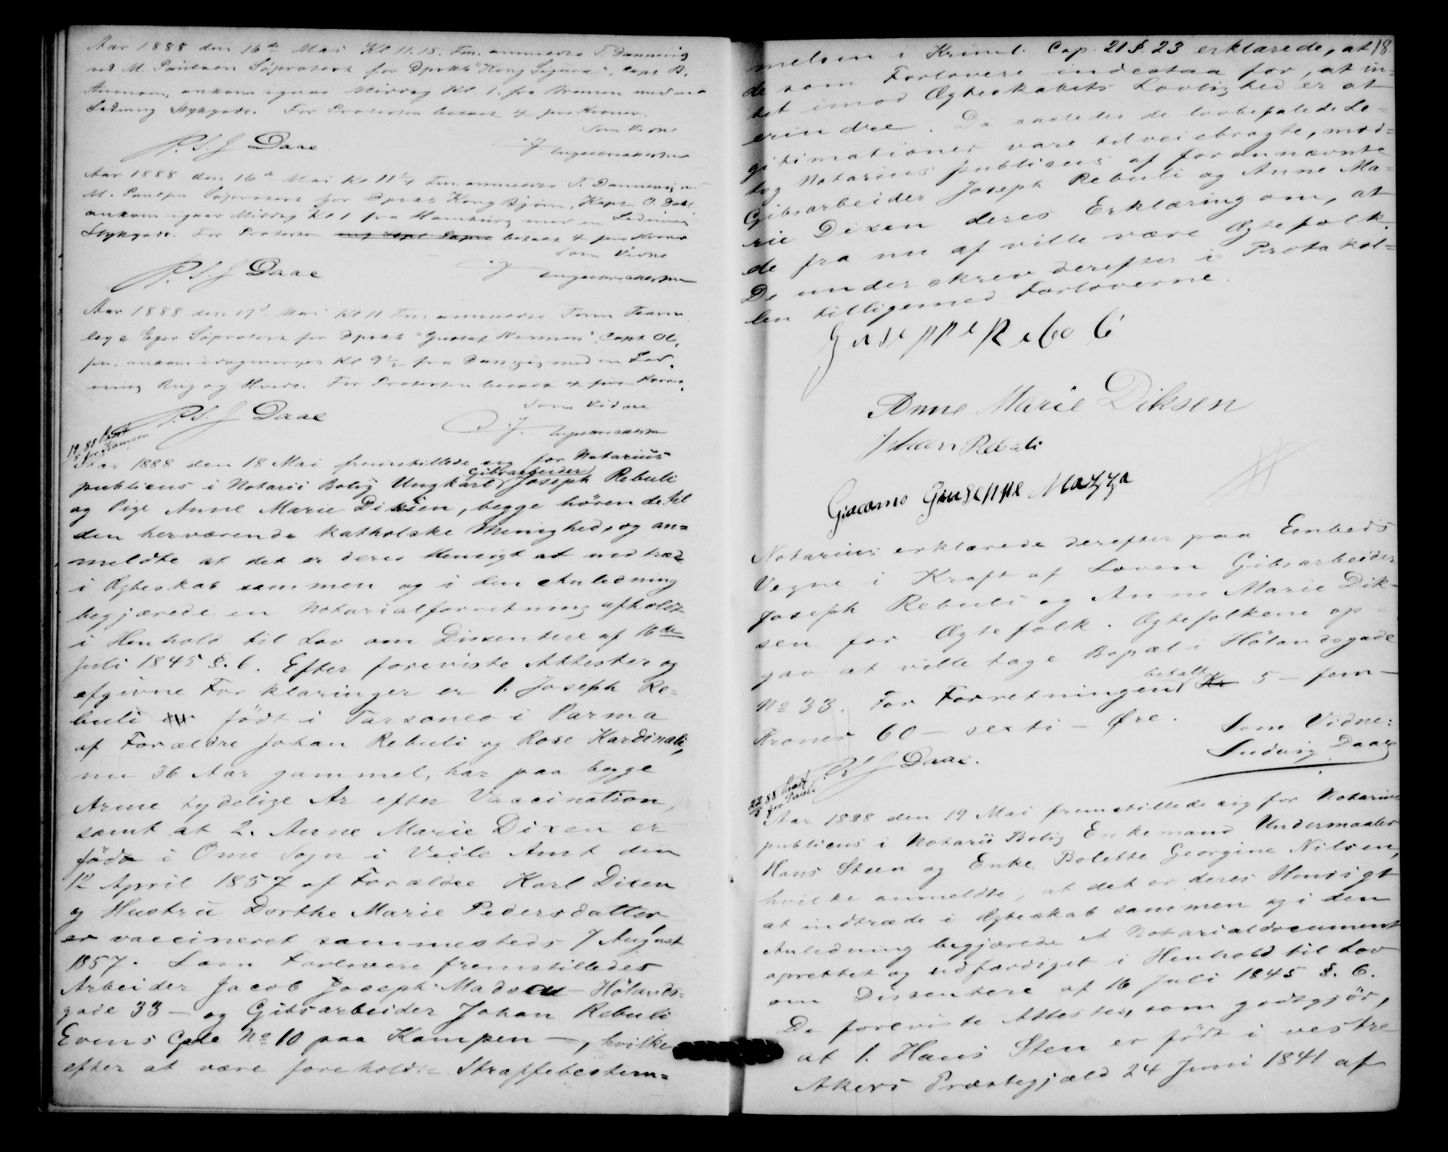 Aar 1888 den 16de Mai Kl 11.15. Fm. anmeldte T. Dannevig
ved M. Paulsen Søprotest for Dpsk. "Kong Sigurd", Capt. B.
ankom igaar Middag Kl. 1. fra Bremen med en
Ladning Stykgods. For Protesten betalt 4 fire Kroner.
Som Vidne
P.S.J. Daae.
Aar 1888 den 16de Mai Kl 11¼ Fm. anmeldte T. Dannevig ved
M. Paulsen Søprotest for Dpsk. Kong Bjørn, Kapt. O. Dahl
ankom igaar Middag Kl 1 fra Hamburg med en Ladning
Stykgods. For Protesten betalt 4 fire Kroner
Som Vidne
P.S.J Daae
Aar 1888 den 17de Mai Kl 11 Fm anmeldte Fearn
ley & Eger Søprotest for Dpsk "Gustaf Wasmen", Capt Ol-
sen, ankom idag morges Kl 9½ fra Danzig med en Lad-
ning Rug og Hvede. For Protesten betalt 4 fire Kroner.
Som Vidne
P.S.J Daae
Aar 1888 den 18 Mai fremstillede sig for Notarius
Gibsarbeider
publicus i Notarii Bolig Ungkarl Joseph Rebuli
og Pige Anne Marie Dixen, begge hørende til
den herværende katholske Menighed, og an-
meldte at det er deres Hensigt at indtræde
i Ægteskab sammen og i den Anledning
begjærede en Notarialforretning afholdt
i Henhold til Lov om Dissentere af 16de
Juli 1845 §. 6. Efter foreviste Attester og
afgivne Forklaringer er 1. Joseph Re-
buli født i Tarsoneo i Parma
af Forældre Johan Rebuli og Rose Kardinali,
nu 36 Aar gammel, har paa begge
Arme tydelige Ar efter Vaccination,
samt at 2. Anne Marie Dixen er
født i Ome Sogn i Veile Amt den
12 April 1857 af Forældre Karl Dixen
og Hustru Dorthe Marie Pedersdatter,
er vaccineret sammesteds 7 August
1857. Som Forlovere fremstilledes
Arbeider Jacob Joseph Madsen Hølands-
gade 33 – og Gibsarbeider Johan Rebuli
Evens Gade No 10 paa Kampen –, hvilke
efter at være foreholdte Straffebestem-
18
melsen i Kriml. Cap. 21 § 23 erklærede, at
de som Forlovere indestaa for, at in-
tet imod Ægteskabets Lovlighed er at
erindre. Da saaledes de lovbefalede Le-
gitimationer vare tilveiebragte, mod-
tog Notarius publicus af forannævnte
Gibsarbeider Joseph Rebuli og Anne Ma-
rie Dixen deres Erklæring om, at
de fra nu af ville være Ægtefolk.
De underskrev derefter i Protokol-
len tilligemed Forloverne.
Giuseppe Reboli
Anne Marie Diksen
Johan Rebuli
Giacomo Giuseppe Mazza
Notarius erklærede derefter paa Embeds
Vegne i Kraft af Loven Gibsarbeider
Joseph Rebuli og Anne Marie Dik-
sen for Ægtefolk. Ægtefolkene op-
gav at ville tage Bopæl i Hølandsgade
No 33. For Forretningen betalt Kr 5 – fem –
Kroner 60 – sexti – Øre.
Som Vidne:
Ludvig Daae
P.S.J Daae.
Aar 1888 den 19 Mai fremstillede sig for Notarius
publicus i Notarii Bolig Enkemand Undermaaler
Hans Steen og Enke Bolette Georgine Nilsen,
hvilke anmeldte, at det er deres Hensigt
at indtræde i Ægteskab sammen og i den
Anledning begjærede et Notarialdocument
oprettet og udfærdiget i Henhold til Lov
om Dissentere af 16 Juli 1845 §. 6.
De foreviste Attester, som godtgjør,
at 1. Hans Sten er født i vestre
Akers Præstegjæld 24 Juni 1841 af